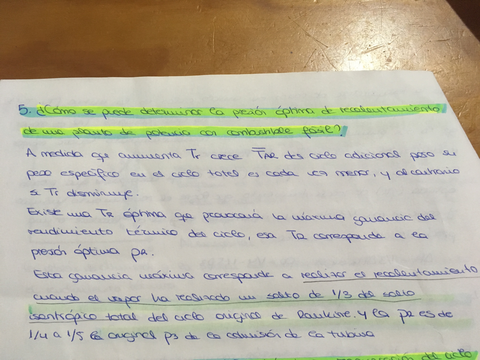 5. ¿Cómo se puede determinar la presión óptima de recalentamiento
de una planta de potencia con combustible fósil?
A medida que aumenta Tr crece T̅AR del ciclo adicional pero su
peso específico en el ciclo total es cada vez menor, y al contrario
si Tr disminuye.
Existe una TR óptima que provocará la máxima ganancia del
rendimiento térmico del ciclo, esa TR corresponde a la
presión óptima pR.
Esta ganancia máxima corresponde a realizar el recalentamiento
cuando el vapor ha realizado un salto de 1/3 del salto
isentrópico total del ciclo original de Rankine. y la pR es de
1/4 a 1/5 la original p3 de la admisión de la turbina